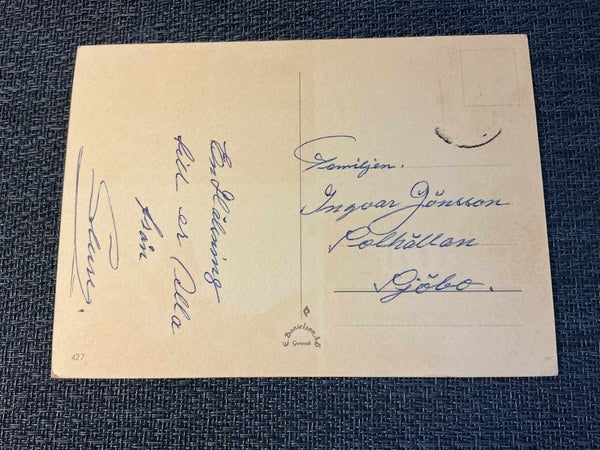 En Hälsning
till er Alla
från
Familjen.
Ingvar Jönsson
Solhällan
Sjöbo.
E. Danielson A.B
427